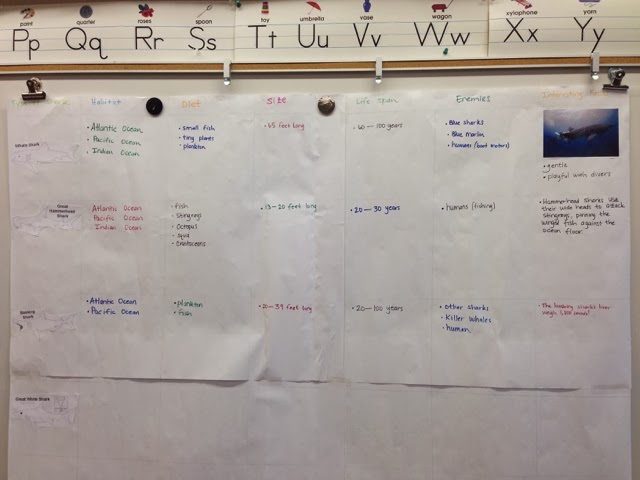 paint
quarter
roses
spoon
toy
umbrella
vase
wagon
xylophone
yarn
Pp Qq Rr Ss Tt Uu Vv Ww Xx Yy
Habitat
Diet
Size
Life Span
Enemies
Interesting
Whale Shark
• Atlantic Ocean
• Pacific Ocean
• Indian Ocean
• small fish
• tiny plants
• plankton
• 65 feet long
• 60-100 years
• Blue sharks
• Blue marlin
• humans (boat motors)
• gentle
• playful with divers
Great
Hammerhead
Shark
Atlantic Ocean
Pacific Ocean
Indian Ocean
• fish
• Stingrays
• Octopus
• Squid
• 13-20 feet long
• 20-30 years
• humans (fishing)
• Hammerhead sharks use
their wide heads to attack
stingrays, pinning the
winged fish against the
ocean floor.
Basking
Shark
• Atlantic Ocean
• Pacific Ocean
• plankton
• fish
• 20-39 feet long
• 20-100 years
• Other sharks
• Killer Whales
• human
• The basking shark's liver
Great White Shark